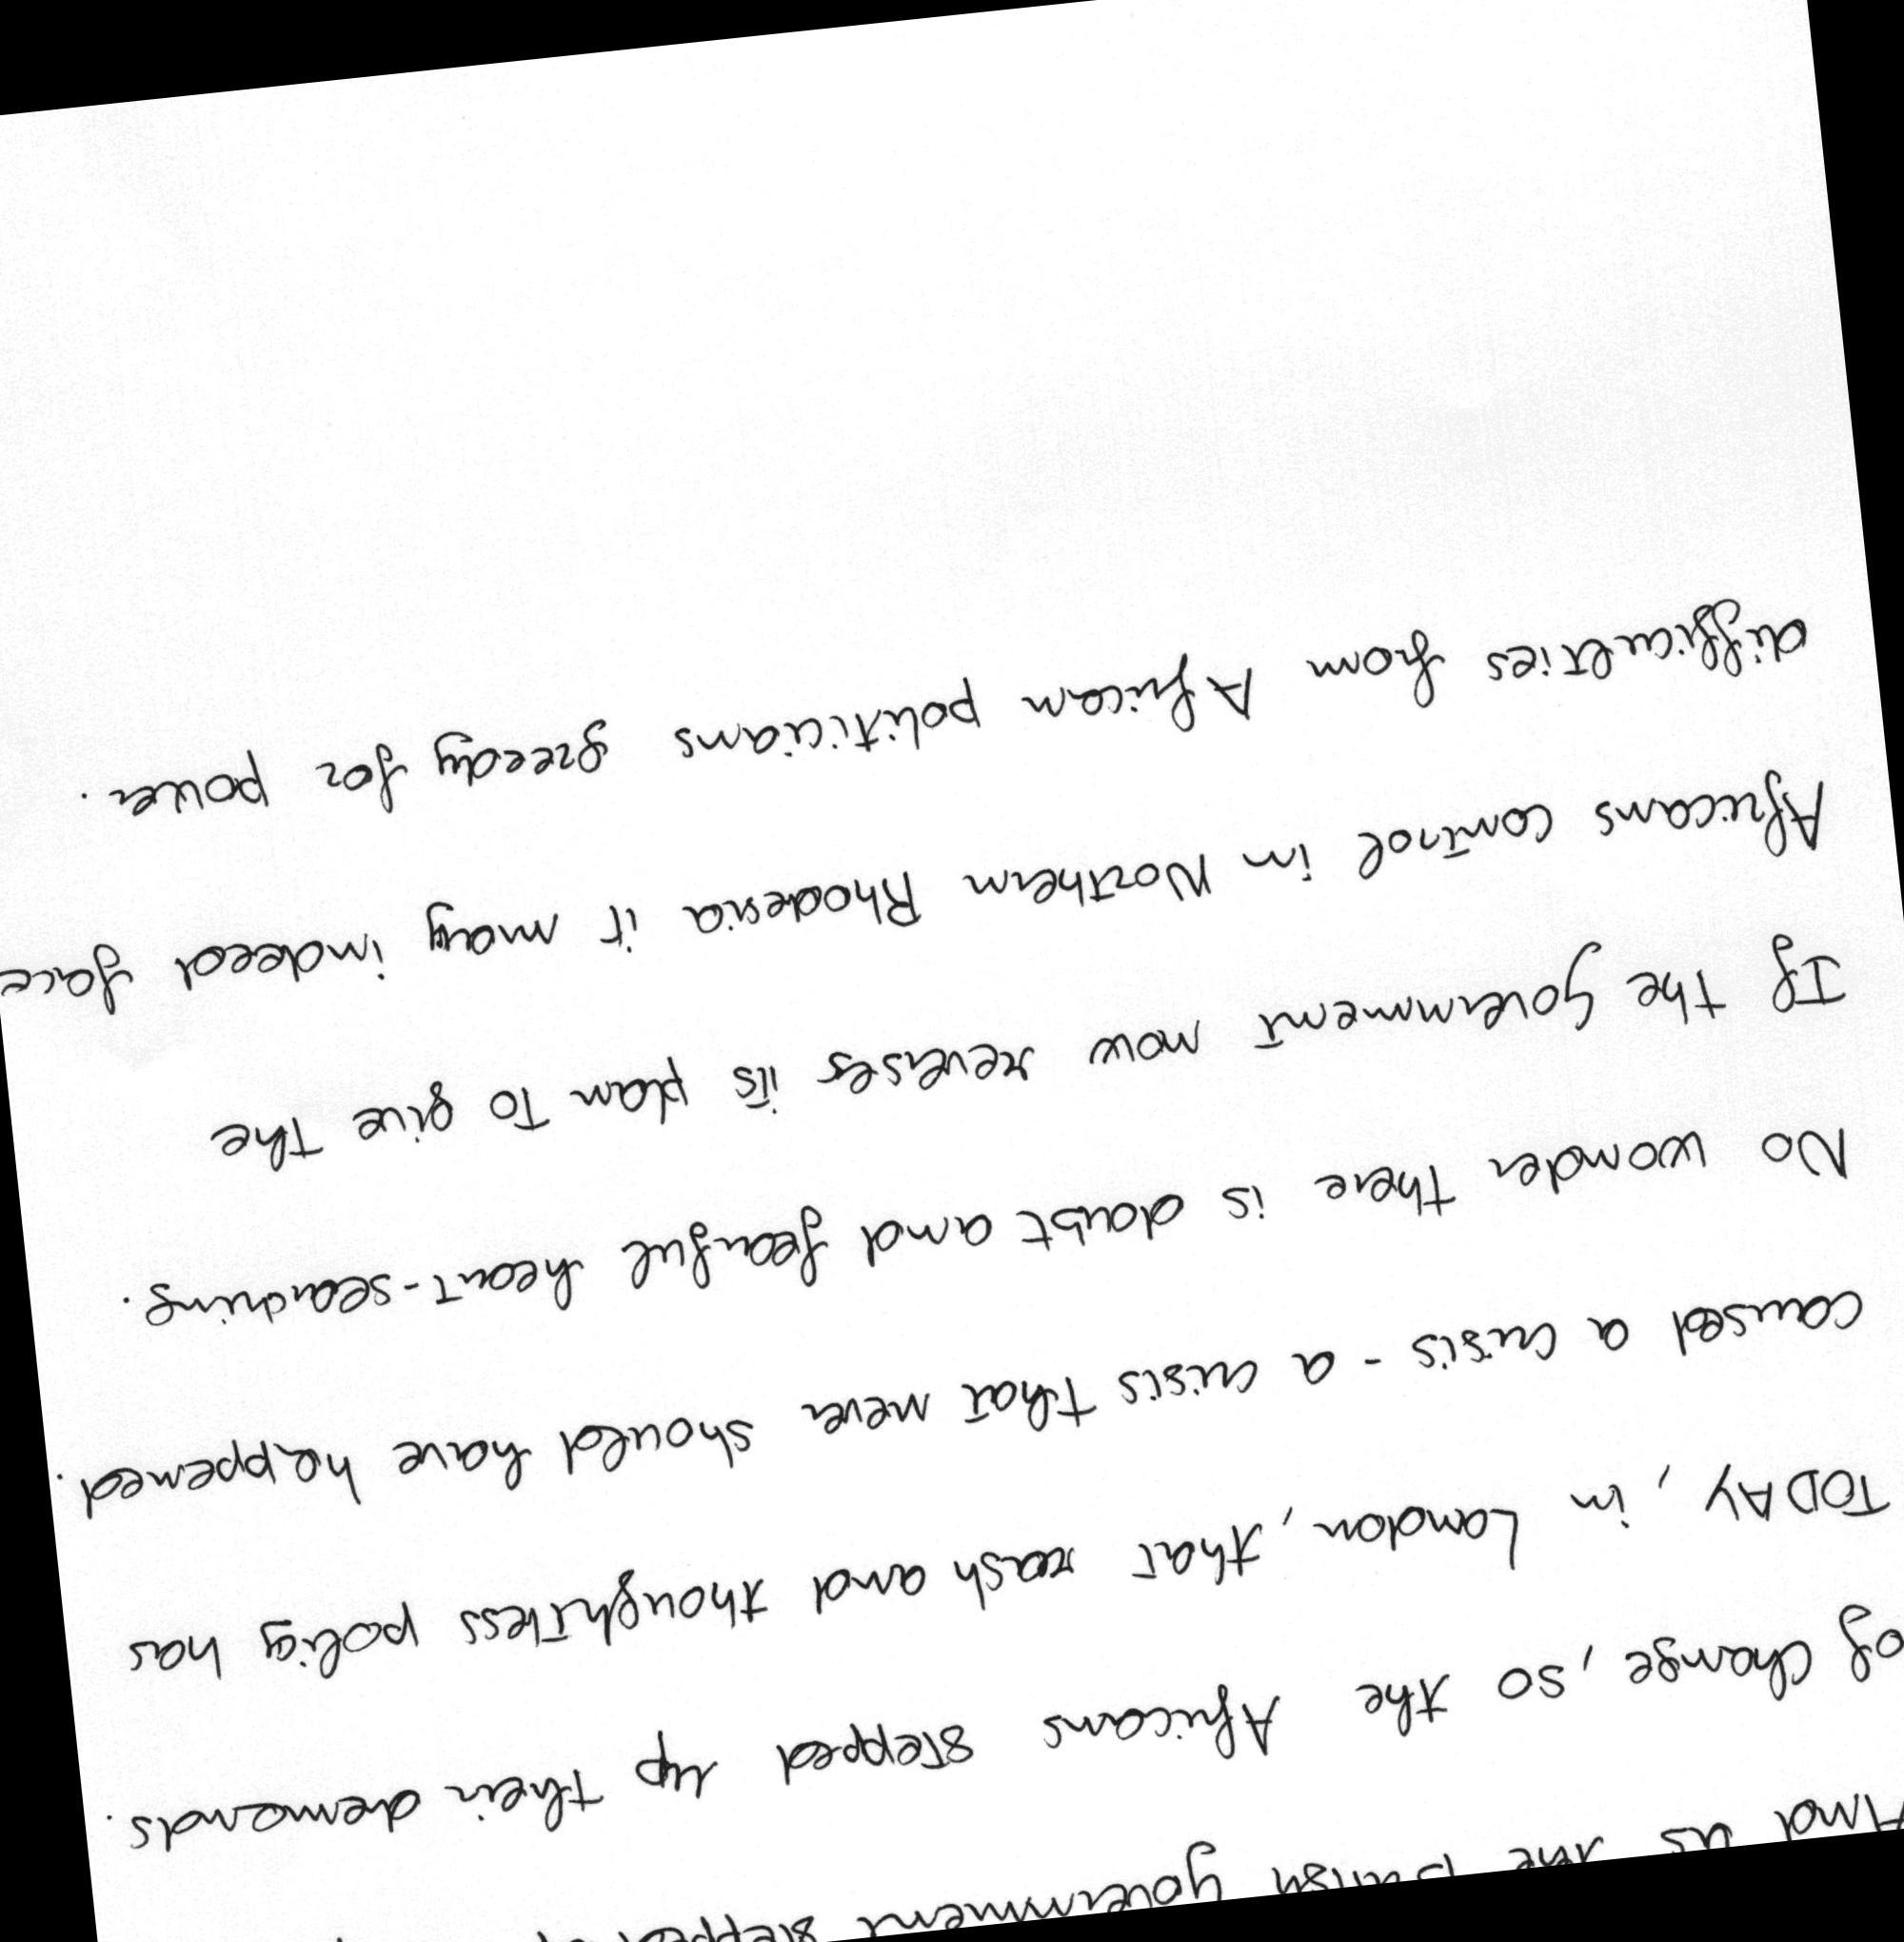 And as the British Government stepped
of change, so the Africans stepped up their demands.
TODAY, in London, that rash and thoughtless policy has
caused a crisis - a crisis that never should have happened.
No wonder there is doubt and fearful heart-searching.
If the Government now reverses its plan to give the
Africans control in Northern Rhodesia it may indeed face
difficulties from African politicians greedy for power.